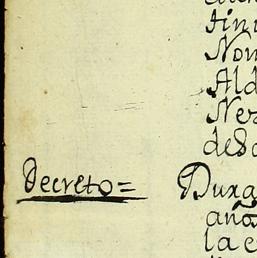 tin
Nom
Ald
Nes
deso
Decreto=
Dura
aña
la e